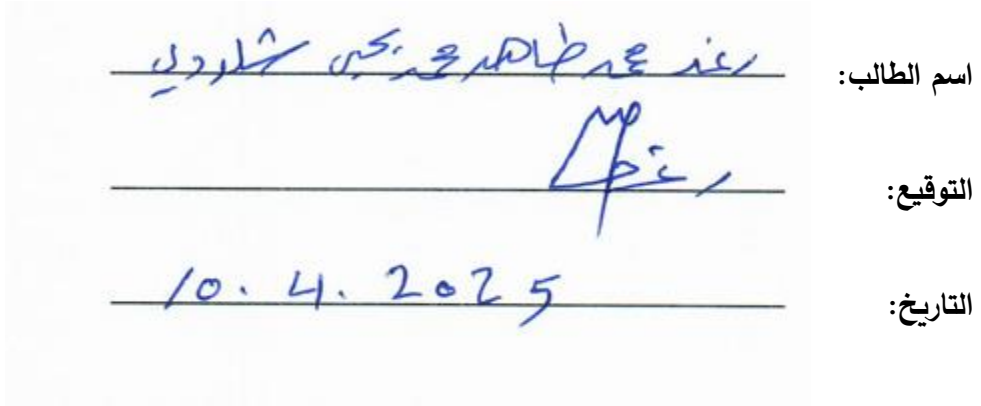 اسم الطالب: رغد محمد ظاهر محمد يحيى
التوقيع: رغد
التاريخ: 10.4.2025